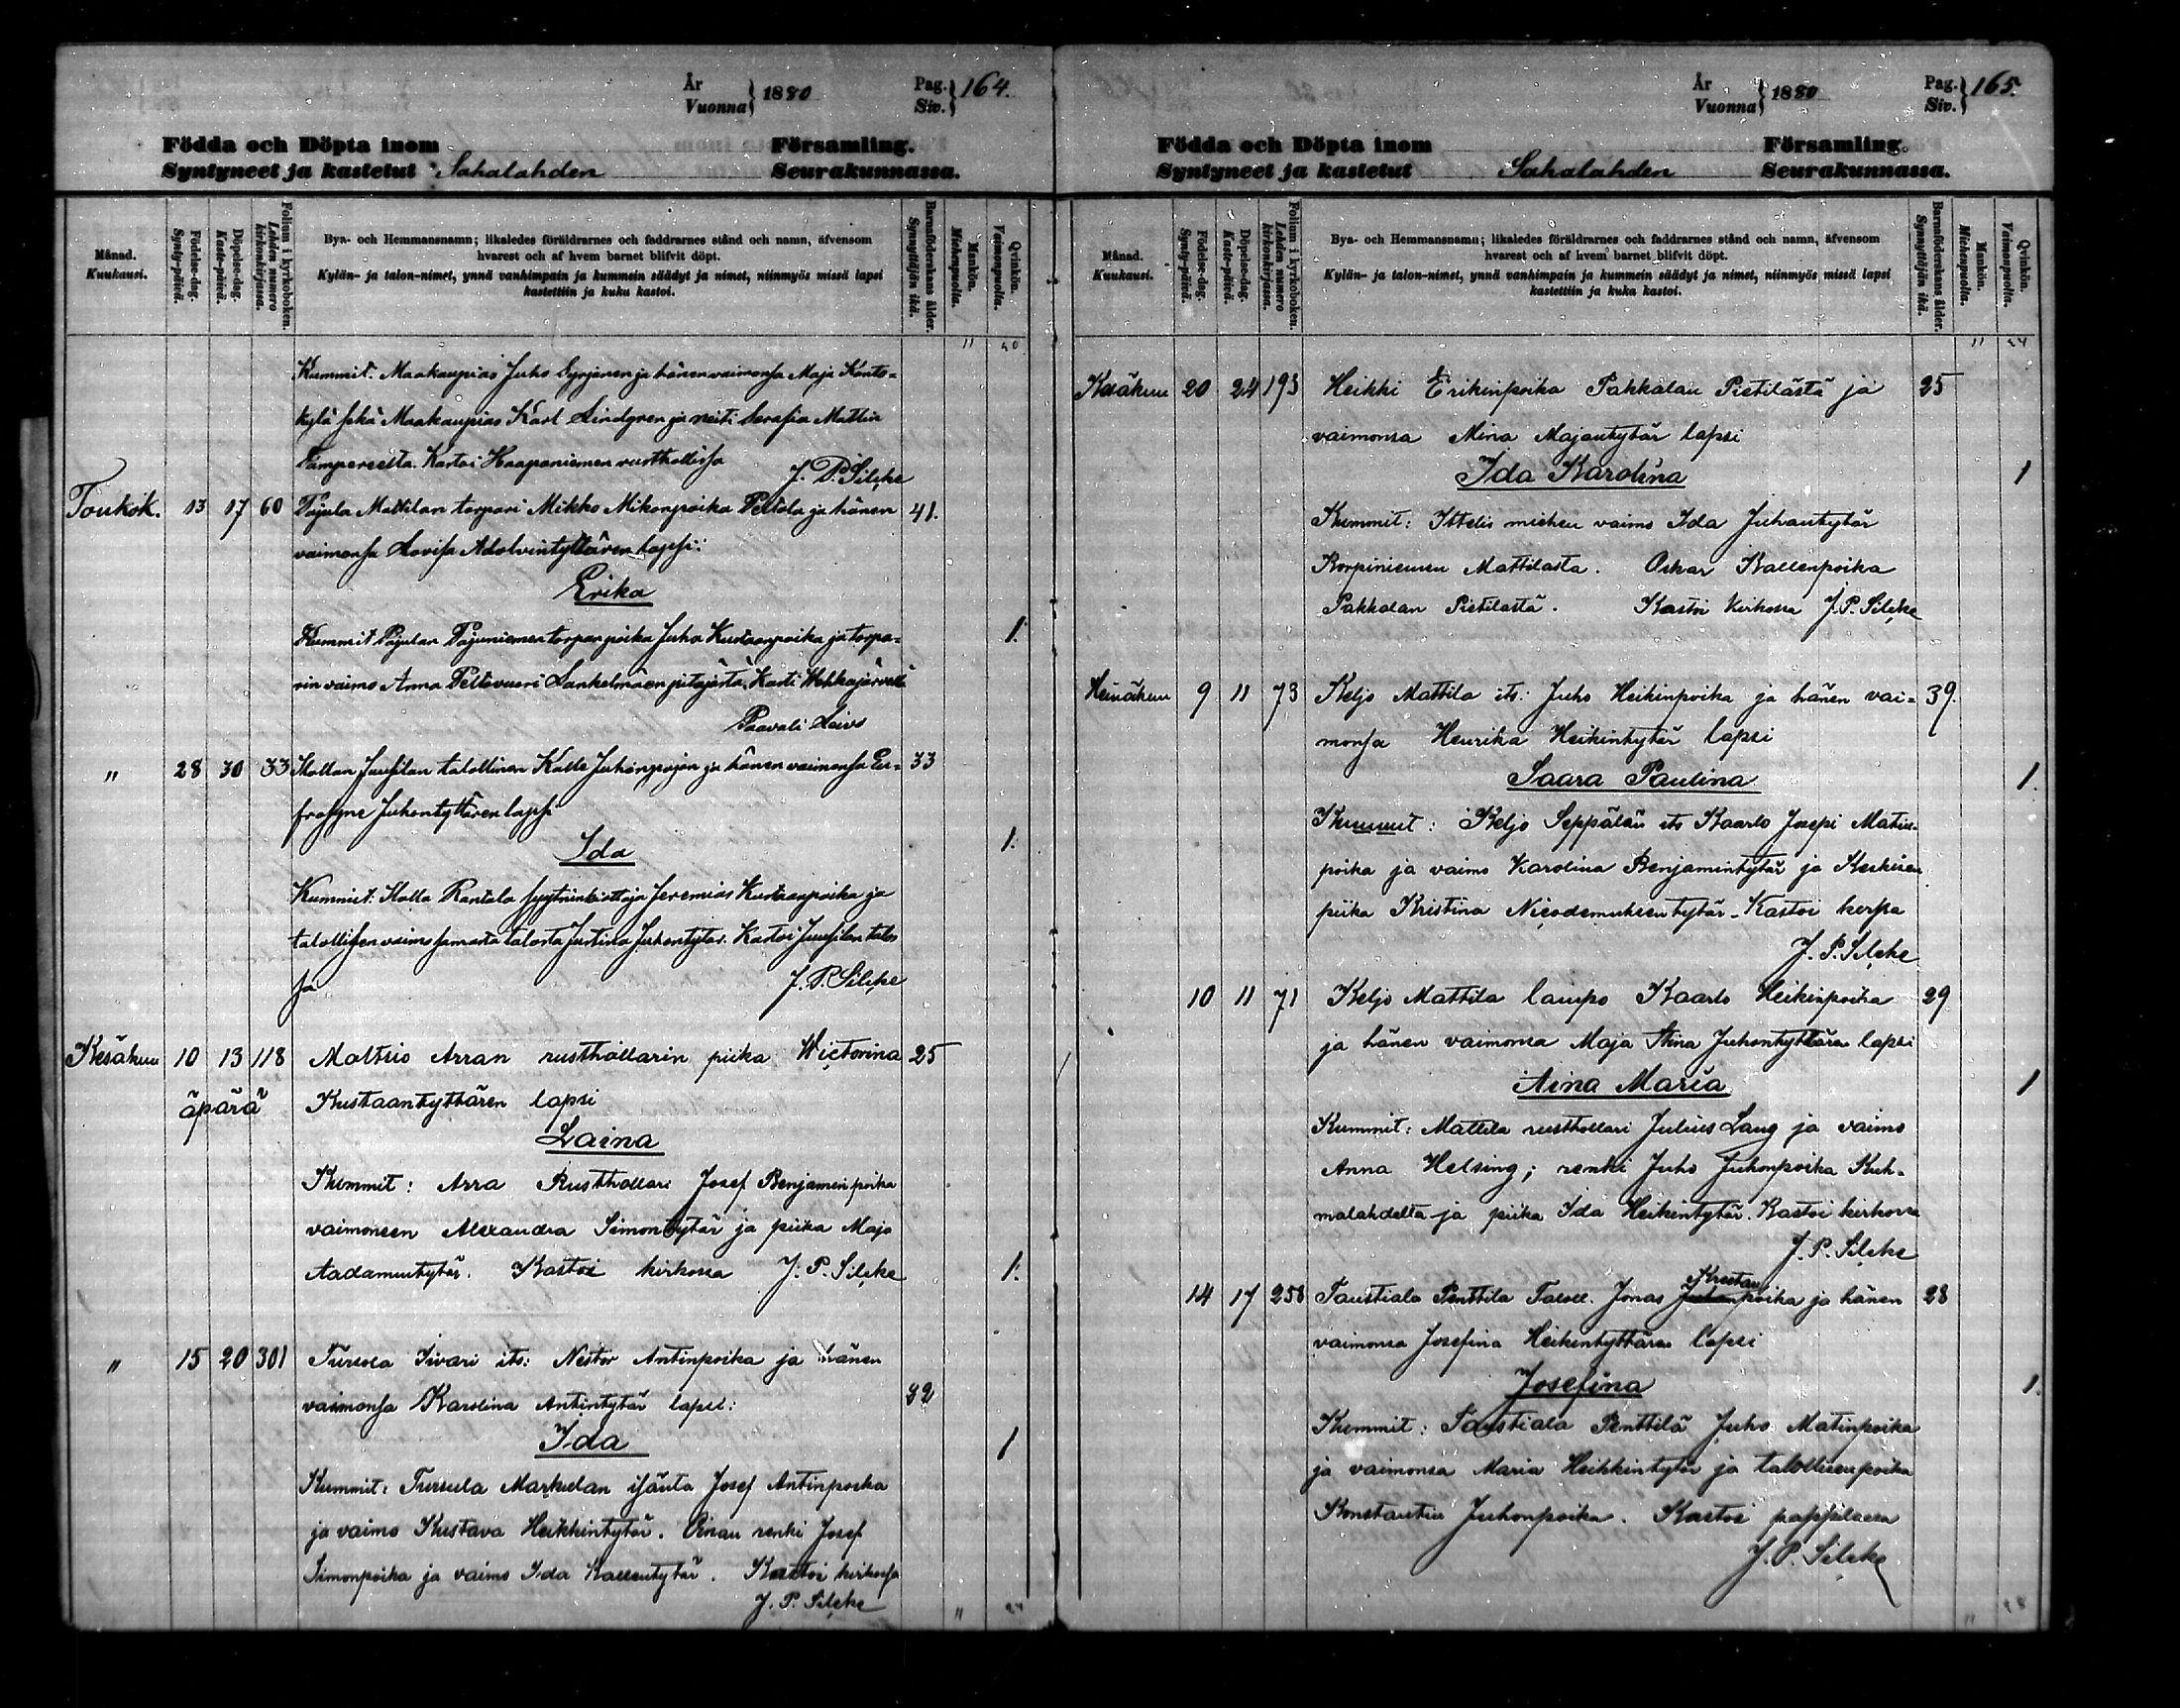 År
Vuonna } 1880
Pag.
Siv. } 164.
Födda och Döpta inom Församling.
Syntyneet ja kastetut Sahalahden Seurakunnassa.
Månad.
Kuukausi.
Födelse-dag.
Synty-päivä.
Döpelse-dag.
Kaste-päivä.
Folium i kyrkoboken.
Lehden numero
kirkonkirjassa.
Bya- och Hemmansnamn; likaledes föräldrarnes och faddrarnes stånd och namn, äfvensom
hvarest och af hvem barnet blifvit döpt.
Kylän- ja talon-nimet, ynnä vanhimpain ja kummein säädyt ja nimet, niinmyös missä lapsi
kastettiin ja kuku kastoi.
Barnaföderskans ålder.
Synnyttäjän ikä.
Mankön.
Miehenpuolta.
Qvinkön.
Vaimonpuolta.
11 20
Kummit. Maakaupias Juho Syrjänen ja hänen vaimonsa Maja Konto-
kylä sekä Maakaupias Karl Lindgren ja neiti Serafia Mattlin
Tampereelta. Kastoi Haapaniemen rusthollissa
J. P. Silcke
Toukok. 13 17 60 Pajula Mattilan torpari Mikko Mikonpoika Peltola ja hänen 41.
vaimonsa Lovisa Adolvintyttären lapsi:
Erika
Kummit Pajulan Pajuniemen torpan poika Juha Kustaanpoika ja torpa- 1.
rin vaimo Anna Peltovuori Lankelmäen pitäjästä, Kasti Wehkajärvellä
Paavali Laivo
" 28 30 33 Mollan Juusilan talollinen Kalle Juhanpojan ja hänen vaimonsa Eu- 33
frosyne Juhontyttären lapsi
Ida 1.
Kummit: Molla Rantala syytninkiottaja Jeremias Kustaanpoika ja
talollisen vaimo samasta talosta Justina Juhontytär. Kastoi Juusilan talos
sa J. P. Silcke
Kesäkuu 10 13 118 Mattsio Arran rusthollarin piika Wictorina 25
äpärä Kustaantyttären lapsi
Laina
Kummit: Arra Rusthollari Josef Benjamin poika
vaimoneen Alexandra Simontytär ja piika Maja
Aadamintytär. Kastoi kirkossa J. P. Silcke 1.
" 15 20 301 Tursola Iivari its: Nestor Antinpoika ja hänen
vaimonsa Karolina Antintytär lapsi: 32
Ida 1
Kummit: Tursula Markulan isäntä Josef Antinpoika
ja vaimo Kustava Heikkintytär. Oinan renki Josef
Simonpoika ja vaimo Ida Kallentytär. Kastoi kirkossa
J. P. Silcke
11 24
År
Vuonna } 1880
Pag.
Siv. } 165.
Födda och Döpta inom Församling.
Syntyneet ja kastetut Sahalahden Seurakunnassa.
Månad.
Kuukausi.
Födelse-dag.
Synty-päivä.
Döpelse-dag.
Kaste-päivä.
Folium i kyrkoboken.
Lehden numero
kirkonkirjassa.
Bya- och Hemmansnamn; likaledes föräldrarnes och faddrarnes stånd och namn, äfvensom
hvarest och af hvem barnet blifvit döpt.
Kylän- ja talon-nimet, ynnä vanhimpain ja kummein säädyt ja nimet, niinmyös missä lapsi
kastettiin ja kuka kastoi.
Barnaföderskans ålder.
Synnyttäjän ikä.
Mankön.
Miehenpuolta.
Qvinkön.
Vaimonpuolta.
11 24
Kesäkuu 20 24 193 Heikki Erikinpoika Pakkalan Pietilästä ja 25
vaimonsa Mina Majantytär lapsi
Ida Karolina 1
Kummit: Ittelis miehen vaimo Ida Juhantytär
Korpiniemen Mattilasta. Oskar Kallenpoika
Pakkalan Pietilästä. Kastoi kirkossa J. P. Silcke
Heinäkuu 9 11 73 Keljo Mattila its: Juho Heikinpoika ja hänen vai- 39.
monsa Henrika Heikintytär lapsi
Saara Paulina 1.
Kummit: Keljo Seppälän its Kaarlo Josepi Matin-
poika ja vaimo Karolina Benjamintytär ja Keskisen
piika Kristina Nicodemuksen tytär. Kastoi kerssa
J. P. Silcke
10 11 71 Keljo Mattila lampo Kaarlo Heikinpoika 29
ja hänen vaimonsa Maja Stina Juhontyttären lapsi
Aina Maria 1
Kummit: Mattila rusthollari Julius Lang ja vaimo
Anna Helsing; renki Juho Juhonpoika Kuh-
malahdelta ja piika Ida Heikintytär. Kastoi kirkossa
J. P. Silcke
Kustan
14 17 258 Taustiala Penttila Taloll. Jonas Juhanpoika ja hänen 28
vaimonsa Josefina Heikintyttären lapsi
Josefina 1.
Kummit: Taustiala Penttilä Juho Matinpoika
ja vaimonsa Maria Heikkintytär ja talollisenpoika
Konstantin Juhonpoika. Kastoi pappilassa
J. P. Silcke
11 28